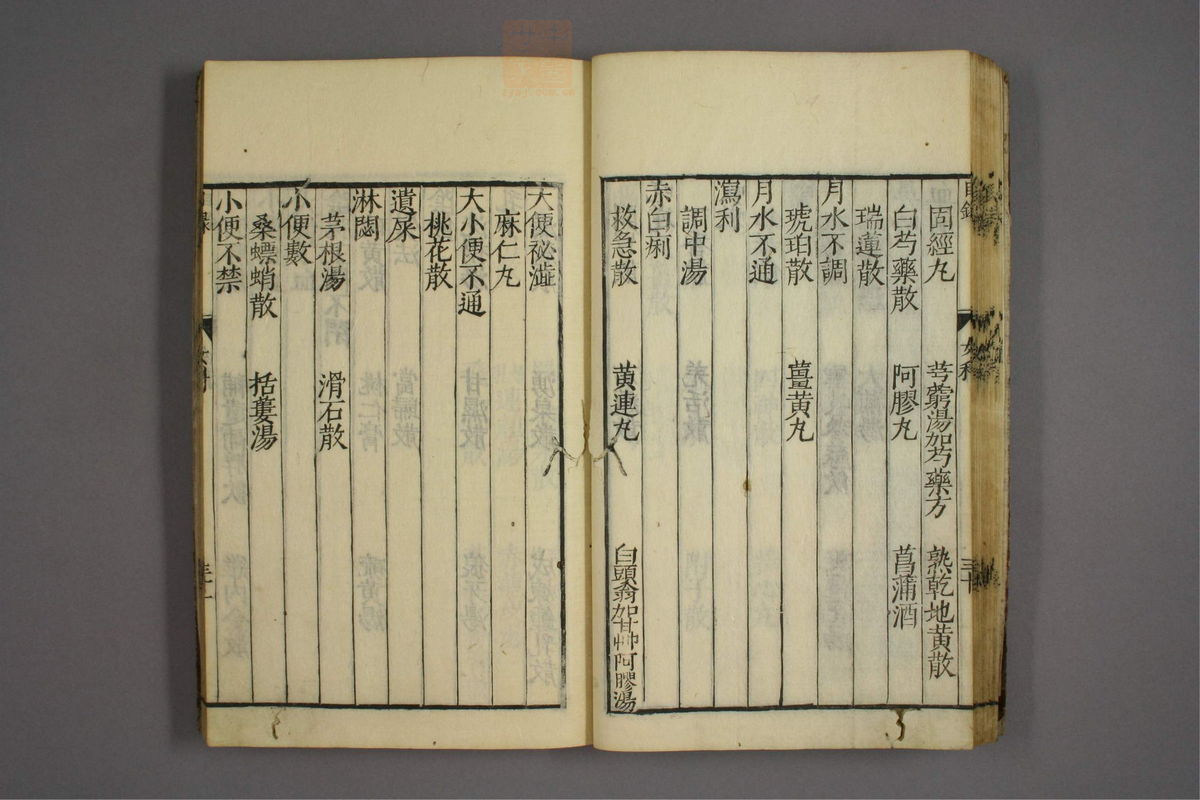 固經丸 芎藭湯加芍藥方 熟乾地黃散
白芍藥散 阿膠丸 菖蒲酒
瑞蓮散
月水不調
琥珀散 薑黃丸
月水不通
瀉利
調中湯
赤白痢
救急散 黃連丸 白頭翁加甘艸阿膠湯
大便祕澁
麻仁丸
大小便不通
桃花散
遺尿
淋閟
茅根湯 滑石散
小便數
桑螵蛸散 栝蔞湯
小便不禁